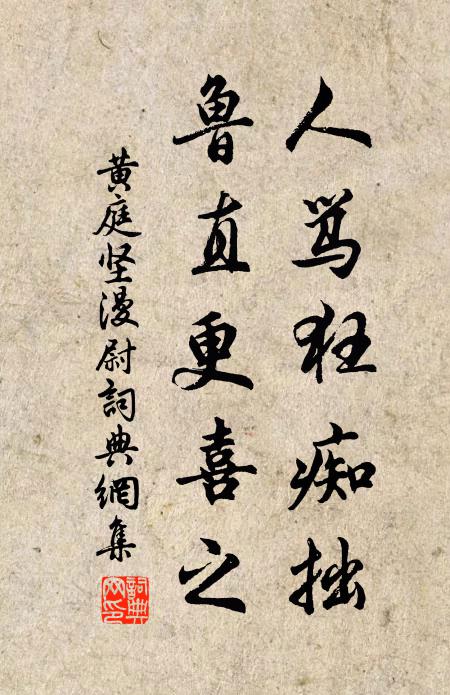 人骂狂痴拙
鲁直更喜之
黄庭坚漫尉詞典網集
詞典网印